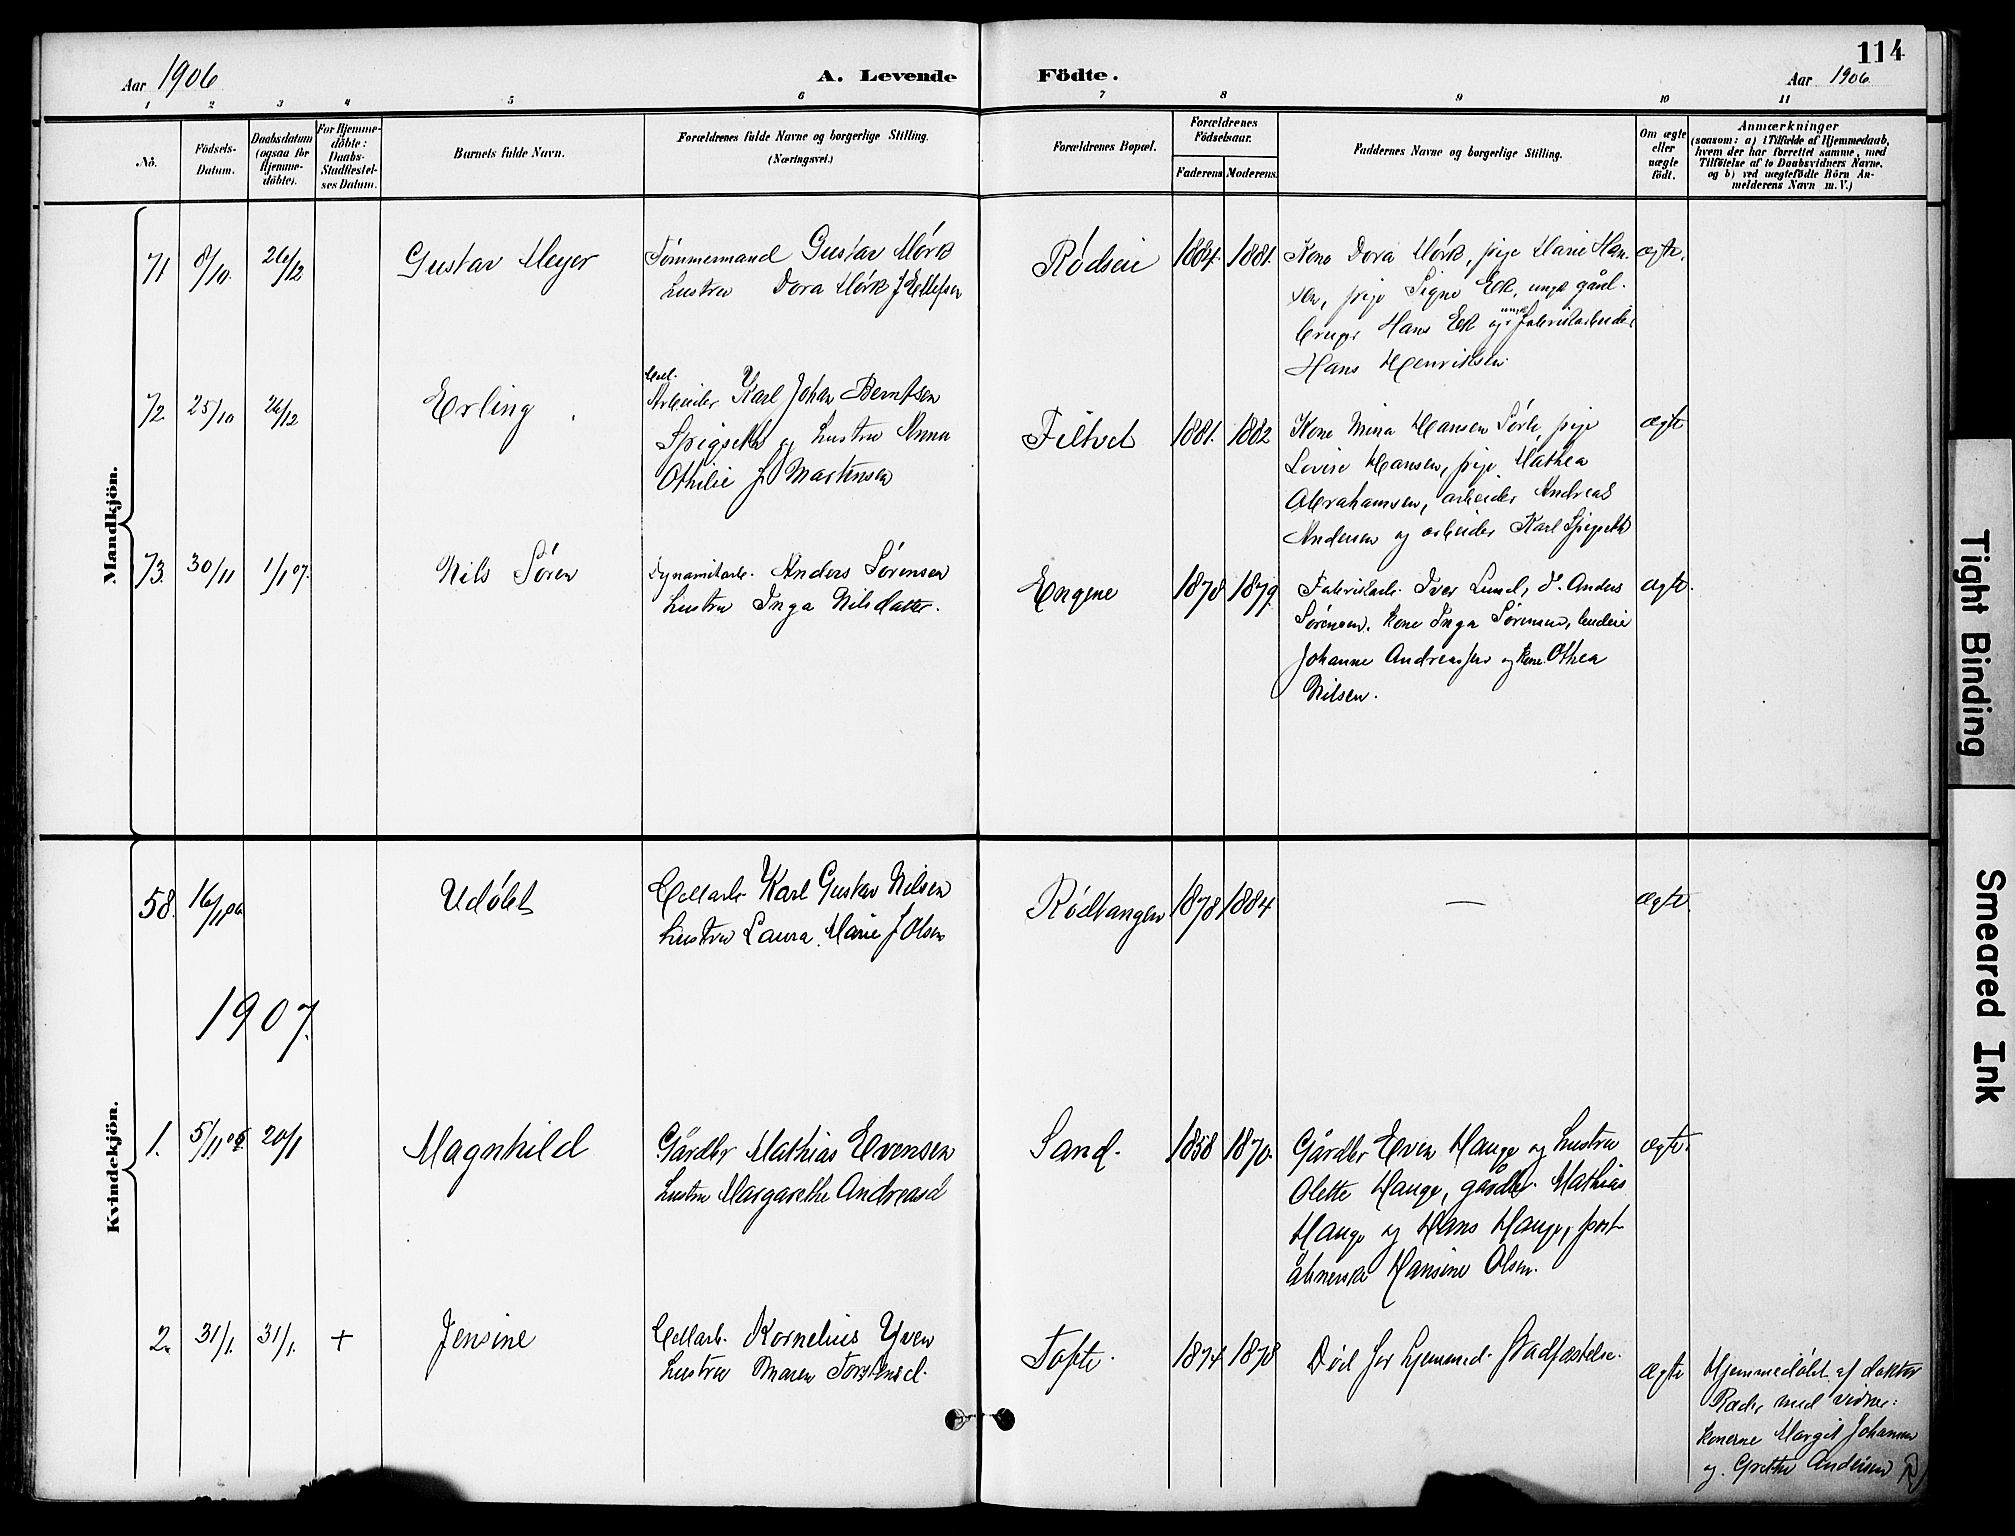 114
Aar 1906
A. Levende Födte.
Aar 1906
1 2 3 4 5 6 7 8 9 10 11
No.
Födsels-
Datum.
Daabsdatum
(ogsaa for
Hjemme-
döbte).
For Hjemme-
döbte:
Daabs-
Stadfestel-
ses Datum.
Barnets fulde Navn.
Forældrenes fulde Navne og borgerlige Stilling.
(Næringsvei.)
Forældrenes Bopæl.
Forældrenes
Födselsaar.
Faderens Moderens.
Faddernes Navne og borgerlige Stilling.
Om ægte
eller
uægte
født.
Anmærkninger
(saasom: a) i Tilfælde af Hjemmedaab,
hvem der har forrettet samme, med
Tilföielse af to Daabsvidners Navne.
og b) ved uægtefödte Börn An-
melderens Navn m. V.)
Mandkjön.
71 8/10. 26/12 Gustav Meyer
Tømmermand Gustav Mørk
hustru Dora Mørk f Ellefsen
Rødseie 1884. 1881.
Kone Dora Mørk, pige Marie Han-
sen, pige Signe Ek, ungk gård-
bruger Hans Ek og ungk Fabrikarbeider
Hans Henriksen
ægte.
72 25/10 26/12 Erling
Cel.
Arbeider Karl Johan Berntsen
Spigseth og hustru Anna
Othilie f Martinsen
Filtvet 1881. 1882
Kone Mina Hansen Sørli, pige
Lovise Hansen, pige Mathea
Abrahamsen, arbeider Andreas
Andersen og arbeider Karl Spigseth
ægte
73. 30/11 1/1 07. Nils Søren
Dynamitarb. Anders Sørensen
hustru Inga Nilsdatter.
Engene 1878 1879.
Fabrikarb. Iver Lund, d. Anders
Sørensen. kone Inga Sørensen, budeie
Johanne Andreassen og kone Othea
Nilsen.
ægte.
Kvindekjön.
58. 16/1 06 Udøbt
Cellarb Karl Gustav Nilsen
hustru Laura Marie f Olsen
Rødtangen 1878 1884
—
ægte.
1907.
1. 5/11 06 20/1 Magnhild
Gårdbr Mathias Evensen
hustru Margarethe Andreasd
Sand. 1858 1870.
Gårdbr Even Hauge og hustru
Olette Hauge, gårdbr. Mathias
Hauge og Hans Hauge, post
åbnerske Hansine Olsen.
ægte.
2. 31/1. 31/1. + Jensine
Cellarb. Kornelius Yven
hustru Maren Torstensd.
Tofte. 1874 1878
Død før hjemmed. stadfæstelse.
ægte
Hjemmedøbt af doktor
Rade med vidner:
konerne Margit Johansen
og Grethe Andersen
Tight Binding
Smeared Ink